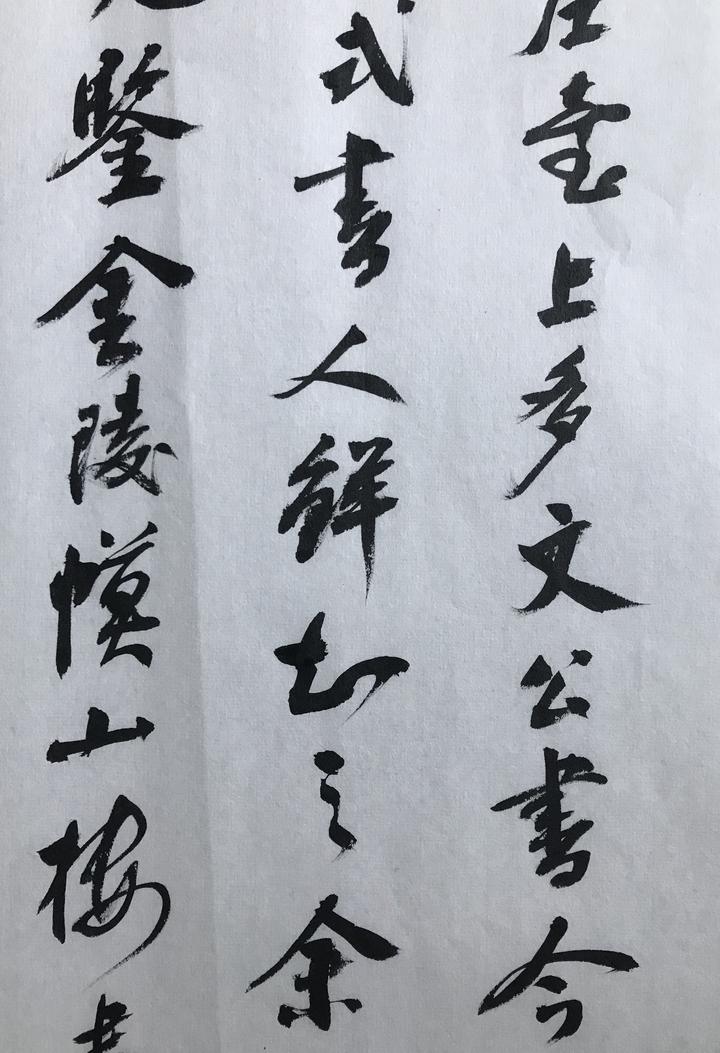 臺上多文公書今
式書人鲜知之余
鑒金陵幙山楼